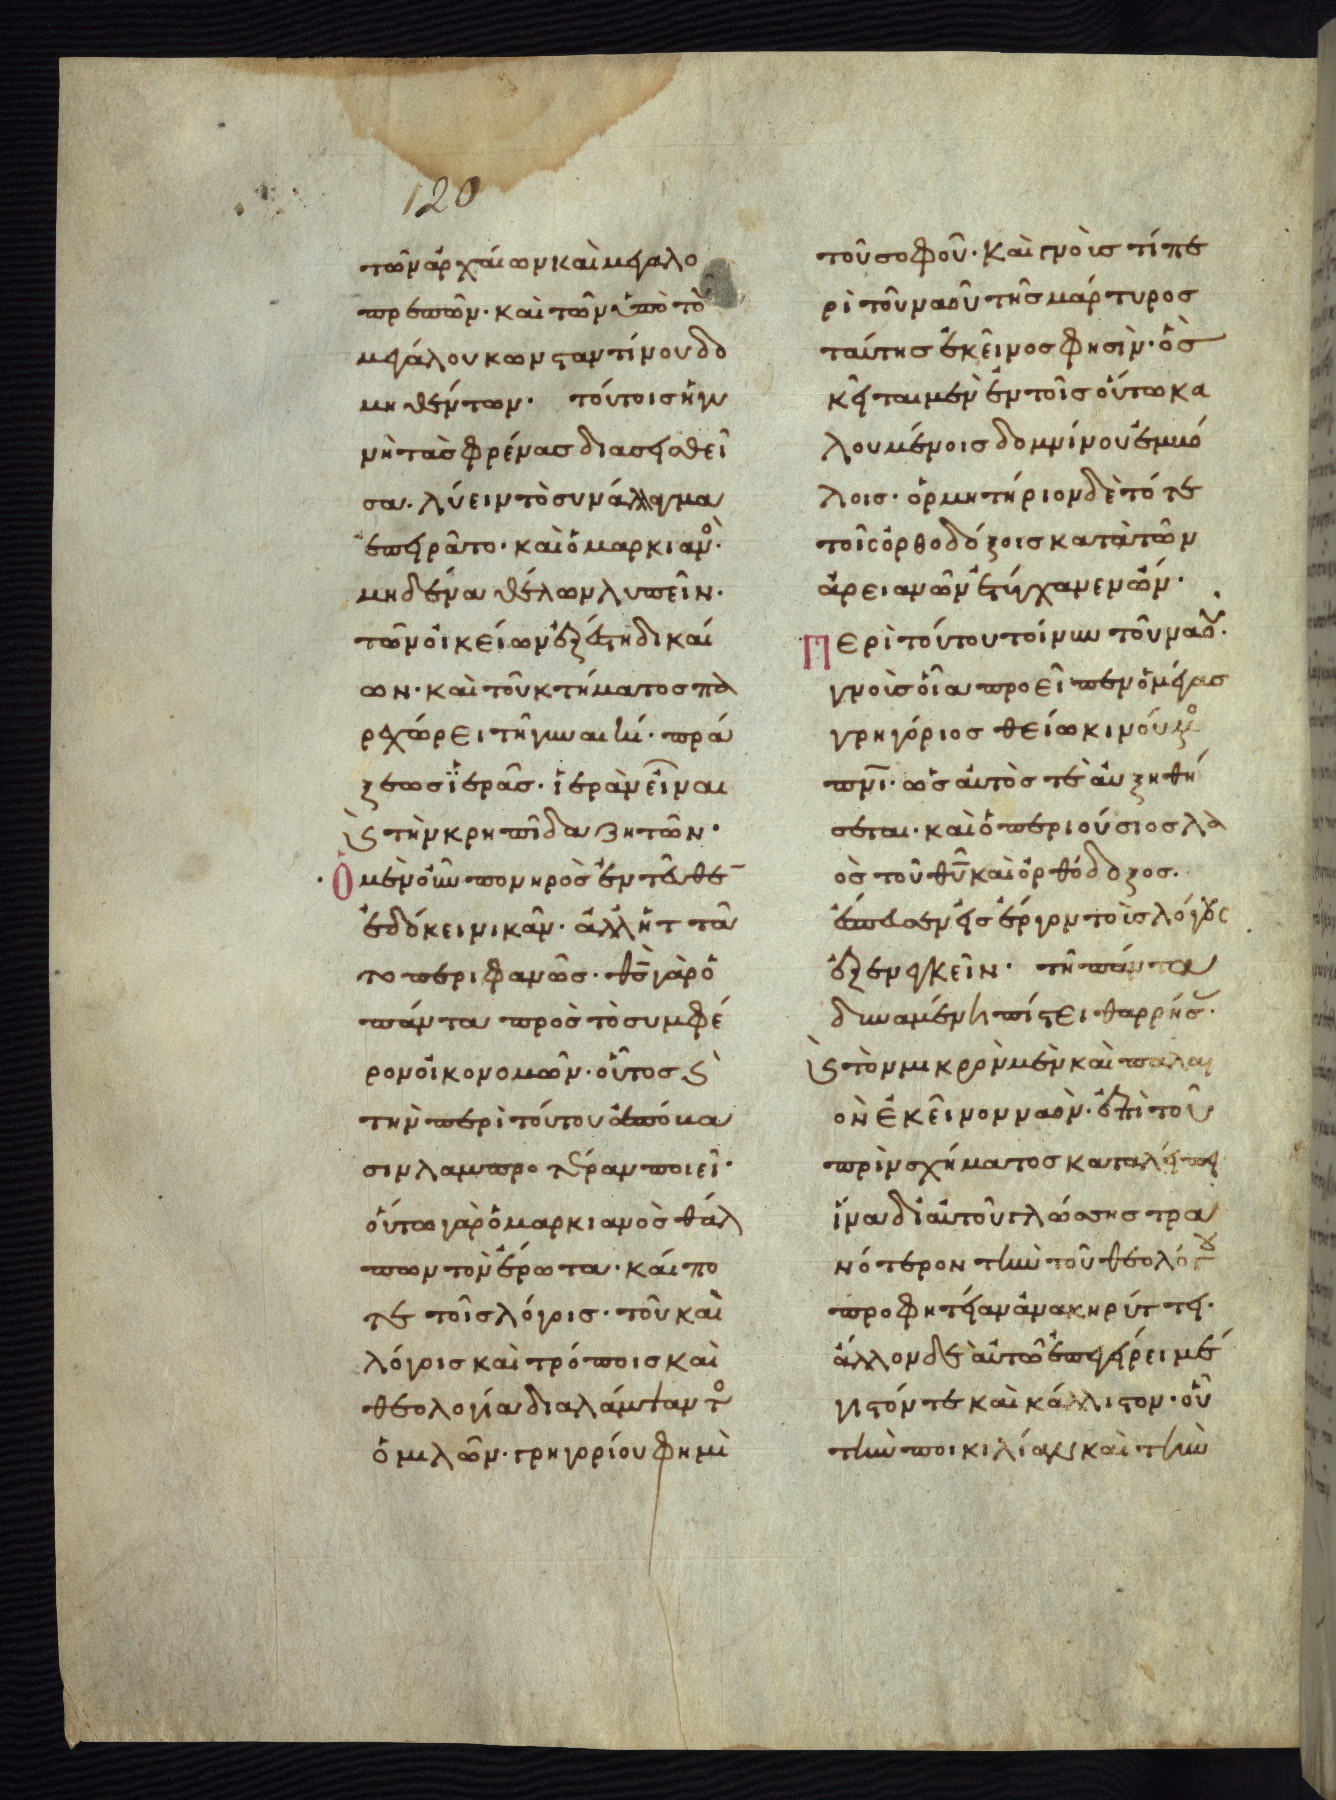 120
τῶν ἀρχαίων καὶ μεγαλο
πρεπῶν· καὶ τῶν ὑπὸ τοῦ
μεγάλου κωνσταντίνου δο
μηθέντων· τούτοις ἡ γυ
νὴ τὰς φρένας διασεισθεῖ
σα. λύειν τὸ συνάλλαγμα
ἐπειρᾶτο· καὶ ὁ μαρκιανὸ·
μηδένα θέλων λυπεῖν.
τῶν οἰκείων ἐξέστη δικαί
ων. καὶ τοῦ κτήματος πα
ρεχώρει τῇ γυναικί. πρά
ξεως ἱερᾶς. ἱερὰν εἶναι
ϗ τὴν κρηπῖδα ζητῶν·
Ὁ μὲν οὖν πονηρὸς ἐντεῦθε
ἐδόκει νικᾶν. ἀλλ' ἡττᾶ
το περιφανῶς. θσ γὰρ ὁ
πάντα πρὸς τὸ συμφέ
ρον οἰκονομῶν. οὗτος ϗ
τὴν περὶ τούτου ὑπόμνη
σιν λαμπροτέραν ποιεῖ.
οὕτω γὰρ ὁ μαρκιανὸς θάλ
πων τὸν ἔρωτα. καί πο
τε τοῖς λόγοις. τοῦ καὶ
λόγοις καὶ τρόποις καὶ
θεολογία διαλάμψαντο
ὁμιλῶν. γρηγορίου φημὶ
τοῦ σοφοῦ. Καὶ γνοὺς τί πε
ρὶ τοῦ ναοῦ τῆς μάρτυρος
ταύτης ἐκεῖνος φησὶν. ὃς
κεῖται μὲν ἐν τοῖς οὕτω κα
λουμένοις δομνίνου ἐμβό
λοις. ὁρμητήριον δὲ τότε
τοῖς ὀρθοδόξοις κατὰ τῶν
ἀρειανῶν ἐτύγχανεν ὤν.
Περὶ τούτου τοίνυν τοῦ ναοῦ.
γνοὺς οἷα προεῖπεν ὁ μέγας
γρηγόριος θείω κινούμενο
πνι. ὡς αὐτὸς τὲ αὐξηθή
σεται. καὶ ὁ περιούσιος λα
ὸς τοῦ θυ καὶ ὀρθόδοξος.
ἔσπευσεν εἰς ἔργον τοὺς λόγους
ἐξενεγκεῖν. τῆ πάντα
δυναμένη πίστει θαρρήσας.
ϗ τὸν μικρὸν μὲν καὶ παλαι
ὸν ἐκεῖνον ναὸν. ἐπὶ τοῦ
πρὶν σχήματος καταλείπει
ἵνα δι' αὐτοῦ γλώσσης τρα
νότερον τὴν τοῦ θεολόγου
προφητείαν ἀνακηρύττει.
ἄλλον δὲ αὐτῶ ἐπεγείρει μέ
γιστόν τε καὶ κάλλιστον. οὗ
τὴν ποικιλίαν καὶ τὴν